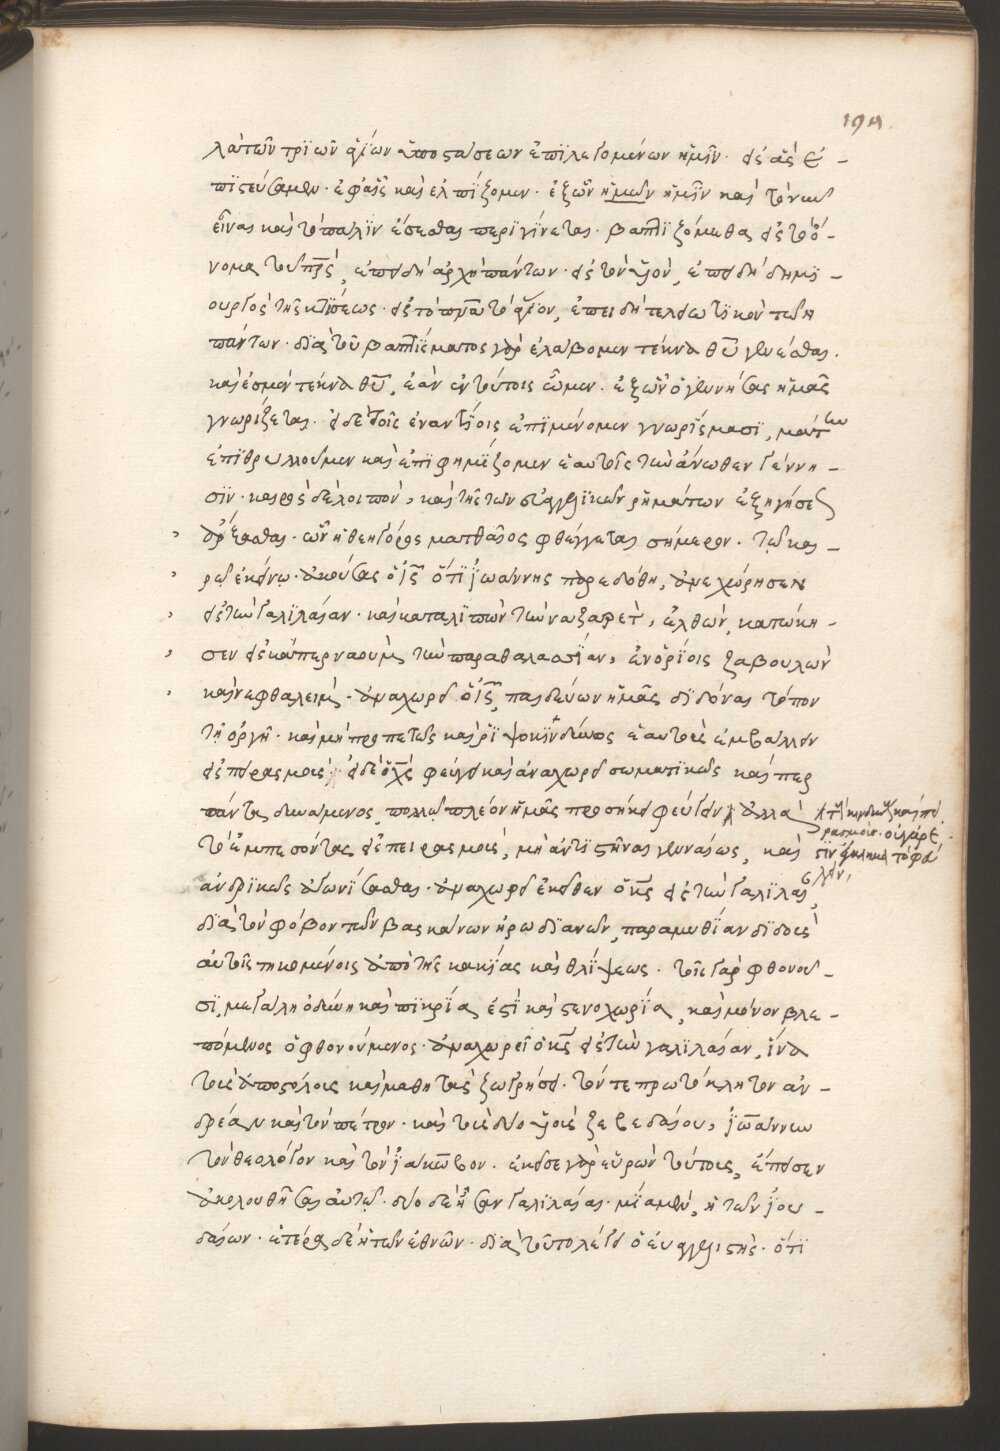 λα τῶν τριῶν ἁγίων ὑποστάσεων ἐπιλεγομένων ἡμῖν· εἰς ἃς ἐ-
πιστεύσαμεν· ἐφ' αἷς καὶ ἐλπίζομεν· ἐξ ὧν ἡμῶν ἡμῖν καὶ τὸ νῦν
εἶναι καὶ τὸ πάλιν ἔσεσθαι περιγίνεται· βαπτιζόμεθα εἰς τὸ ὄ-
νομα τοῦ πρς, ἐπειδὴ ἀρχὴ πάντων· εἰς τὸν υἱὸν, ἐπειδὴ δημι-
ουργὸς τῆς κτίσεως· εἰς τὸ πνα τὸ ἅγιον, ἐπειδὴ τελειωτικὸν τῶν
πάντων· διὰ τοῦ βαπτίσματος γὰρ ἐλάβομεν τέκνα θυ γενέσθαι·
καὶ ἐσμὲν τέκνα θυ, ἐὰν ἐν τούτοις ὦμεν· ἐξ ὧν ὁ γεννήσας ἡμᾶς
γνωρίζεται· εἰ δὲ τοῖς ἐναντίοις ἐπιμένομεν γνωρίσμασι, μάτην
ἐπιθρυλλοῦμεν καὶ ἐπιφημίζομεν ἑαυτοῖς τὴν ἄνωθεν γέννη-
σιν· καιρὸς δὲ λοιπὸν, καὶ τῆς τῶν εὐαγγελικῶν ῥημάτων ἐξηγήσεως
ἄρξασθαι· ὧν ἡ θεηγόρος ματθαῖος φθέγγεται σήμερον· τῷ και-
ρῷ ἐκείνῳ· ἀκούσας ὁ ις ὅτι ἰωάννης παρεδόθη, ἀνεχώρησεν
εἰς τὴν γαλιλαίαν· καὶ καταλιπὼν τὴν ναζαρὲτ, ἐλθὼν, κατώκη-
σεν εἰς καπερναοὺμ τὴν παραθαλασσίαν, ἐν ὁρίοις ζαβουλὼν
καὶ νεφθαλείμ· ἀναχωρεῖ ὁ ις, παιδεύων ἡμᾶς διδόναι τόπον
τῇ ὀργῇ· καὶ μὴ προπετῶς καὶ ῥιψοκινδύνως ἑαυτοὺς ἐμβάλλειν
εἰς πειρασμούς· εἰ δὲ ὁ χς φεύγει καὶ ἀναχωρεῖ σωματικῶς καίπερ
πάντα δυνάμενος, πολλῷ πλέον ἡμᾶς προσήκει φεύγειν· ἀλλὰ
τὸ ἐμπεσόντας εἰς πειρασμοὺς, μὴ ἀντιστῆναι γενναίως, καὶ
ἀνδρικῶς ἀγωνίσασθαι· ἀναχωρεῖ ἐκεῖθεν ὁ κς εἰς τὴν γαλιλαίαν,
διὰ τὸν φόβον τῶν βασκάνων ἡρωδιανῶν, παραμυθίαν διδοὺς
αὐτοῖς τηκομένοις ἀπὸ τῆς κακίας καὶ θλίψεως· τοῖς γὰρ φθονοῦ-
σι, μεγάλη ὀδύνη καὶ πικρία ἐστὶ καὶ στενοχωρία, καὶ μόνον βλε-
πόμενος ὁ φθονούμενος· ἀναχωρεῖ ὁ κς εἰς τὴν γαλιλαίαν, ἵνα
τοὺς ἀποστόλους καὶ μαθητὰς ζωγρήσῃ· τόν τε πρωτόκλητον ἀν-
δρέαν καὶ τὸν πέτρον· καὶ τοὺς δύο υἱοὺς ζεβεδαίου, ἰωάννην
τὸν θεολόγον καὶ τὸν ἰάκωβον· ἐκεῖσε γὰρ εὑρὼν τούτους, ἔπεισεν
ἀκολουθῆσαι αὐτῷ· δύο δὲ ἦσαν γαλιλαίαι· μία μὲν, ἡ τῶν ἰου-
δαίων· ἑτέρα δὲ ἡ τῶν ἐθνῶν· διὰ τοῦτο λέγει ὁ εὐαγγελιστής· ὅτι